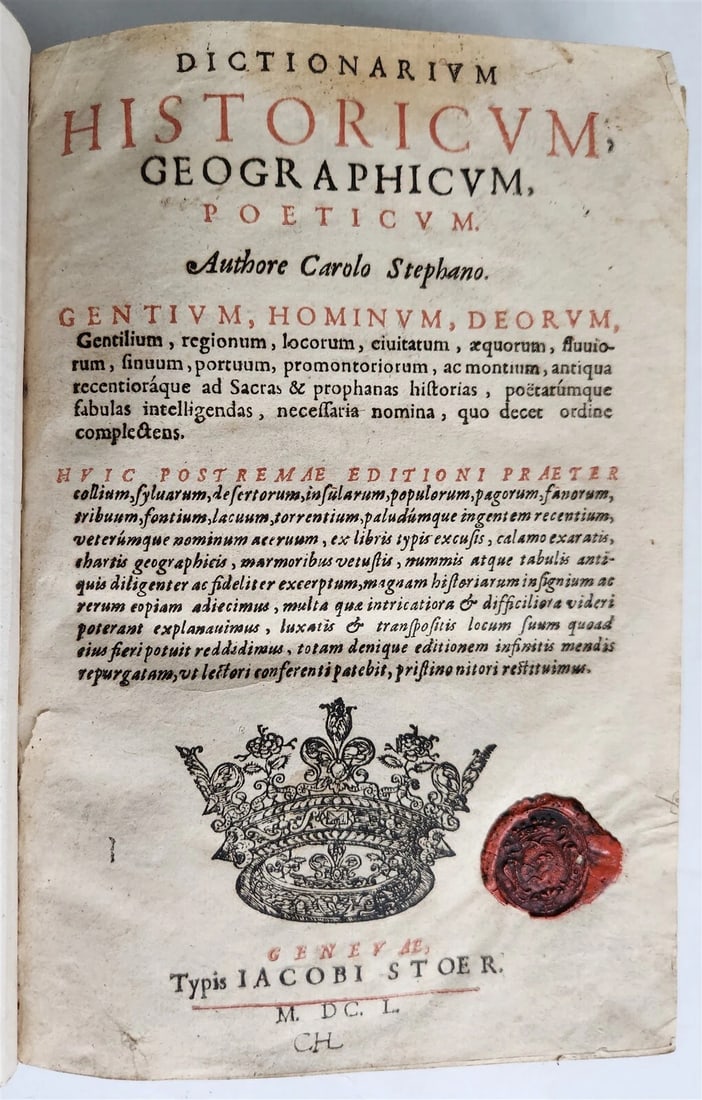 DICTIONARIVM
HISTORICVM,
GEOGRAPHICVM,
POETICVM.
Authore Carolo Stephano.
GENTIVM, HOMINVM, DEORVM,
Gentilium, regionum, locorum, ciuitatum, æquorum, fluuio-
rum, ſinuum, portuum, promontoriorum, ac montium, antiqua
recentioráque ad Sacras & prophanas hiſtorias, poëtarúmque
fabulas intelligendas, neceſſaria nomina, quo decet ordine
complectens.
HVIC POSTREMAE EDITIONI PRAETER
collium, ſyluarum, deſertorum, inſularum, populorum, pagorum, fanorum,
tribuum, fontium, lacuum, torrentium, paludúmque ingentem recentium,
veterúmque nominum aceruum, ex libris typis excuſis, calamo exaratis,
chartis geographicis, marmoribus vetuſtis, nummis atque tabulis anti-
quis diligenter ac fideliter excerptum, magnam hiſtoriarum inſignium ac
rerum copiam adiecimus, multa quæ intricatiora & difficiliora videri
poterant explanauimus, luxatis & tranſpoſitis locum ſuum quoad
eius fieri potuit reddidimus, totam denique editionem infinitis mendis
repurgatam, vt lectori conferenti patebit, priſtino nitori reſtituimus.
GENEVAE,
Typis IACOBI STOER.
M. DC. L.
CH